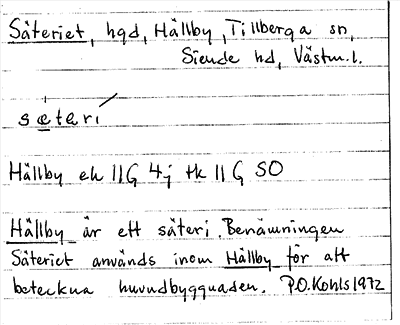 Säteriet, hgd, Hällby, Tillberga sn,
Siende hd, Västm. l.
sæteri
Hällby ek 11G 4j tk 11 G SO
Hällby är ett säteri. Benämningen
Säteriet används inom Hällby för att
beteckna huvudbyggnaden. P.O. Kohls 1972